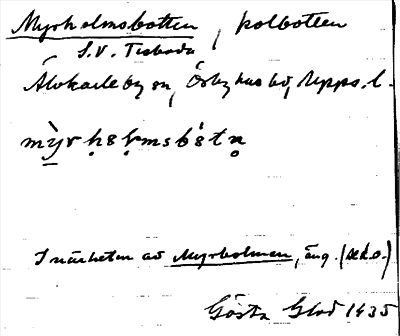 Myrholmsbotten, kolbotten
S.V. Tisboda
Älvkarleby sn, Örbyhus hd, Upps. l.
mỳrhɷlmsbótn̥
I närheten av Myrholmen, äng. (se d.o.)
Gösta Glad 1935